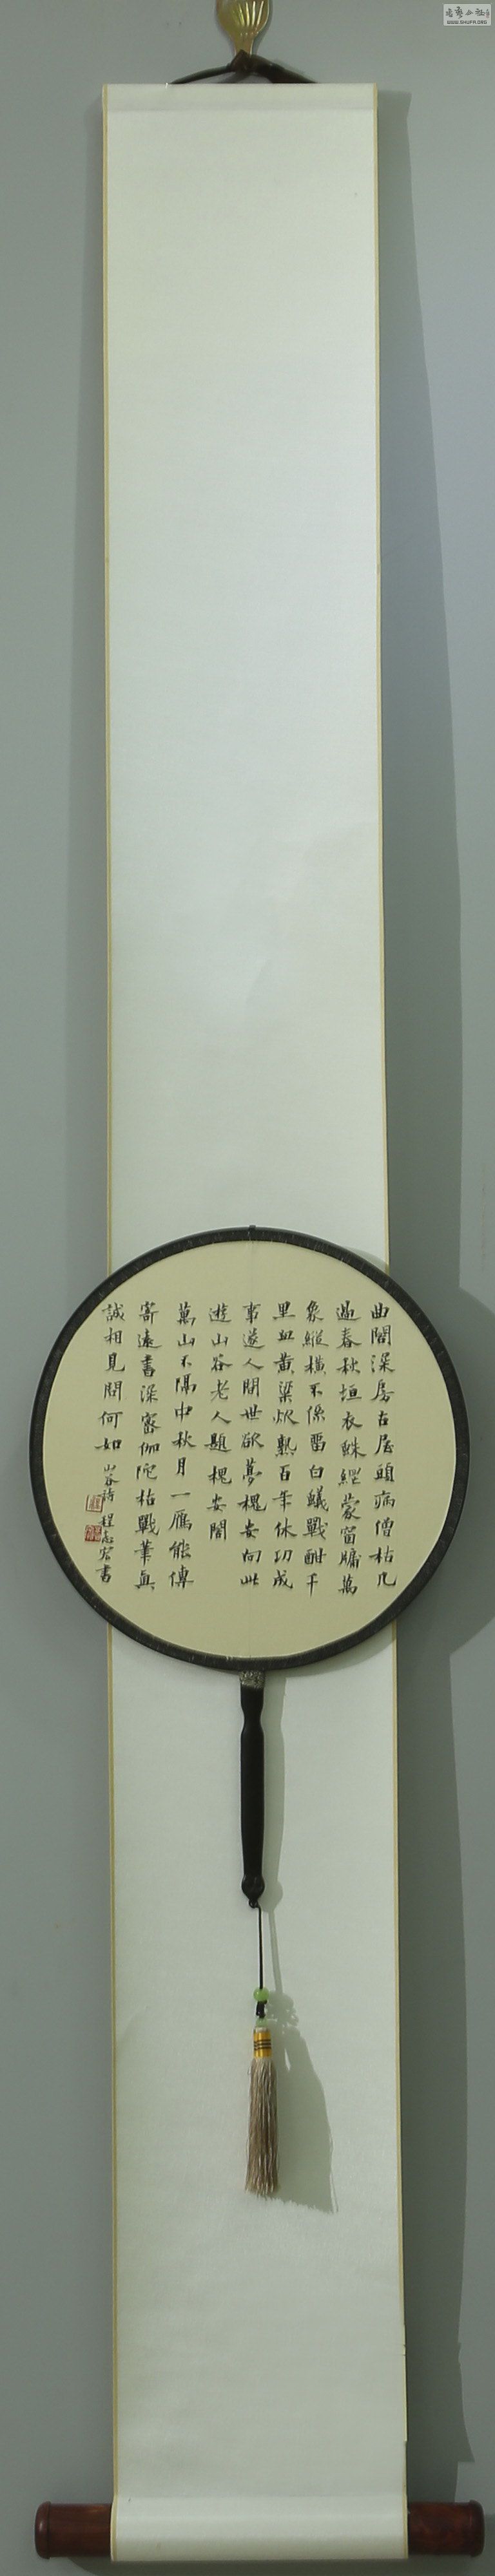 曲閣深房古屋頭病僧枯几
過春秋垣衣蛛網蒙窗牖萬
象縱橫不係留白蟻戰酣千
里血黃粱炊熟百年休功成
事遂人間世欲夢槐安向此
遊山谷老人題槐安閣
萬山不隔中秋月一雁能傳
寄遠書深密伽陀枯戰筆真
誠相見問何如山谷詩程志宏書
WWW.SHUFA.ORG